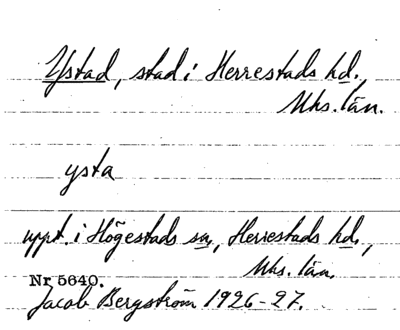 Ystad, stad i Herrestads hd.,
Mhs. län.
ysta
uppt. i Högestads sn, Herrestads hd.,
Mhs. län.
Nr 5640.
Jacob Bergström 1926-27.